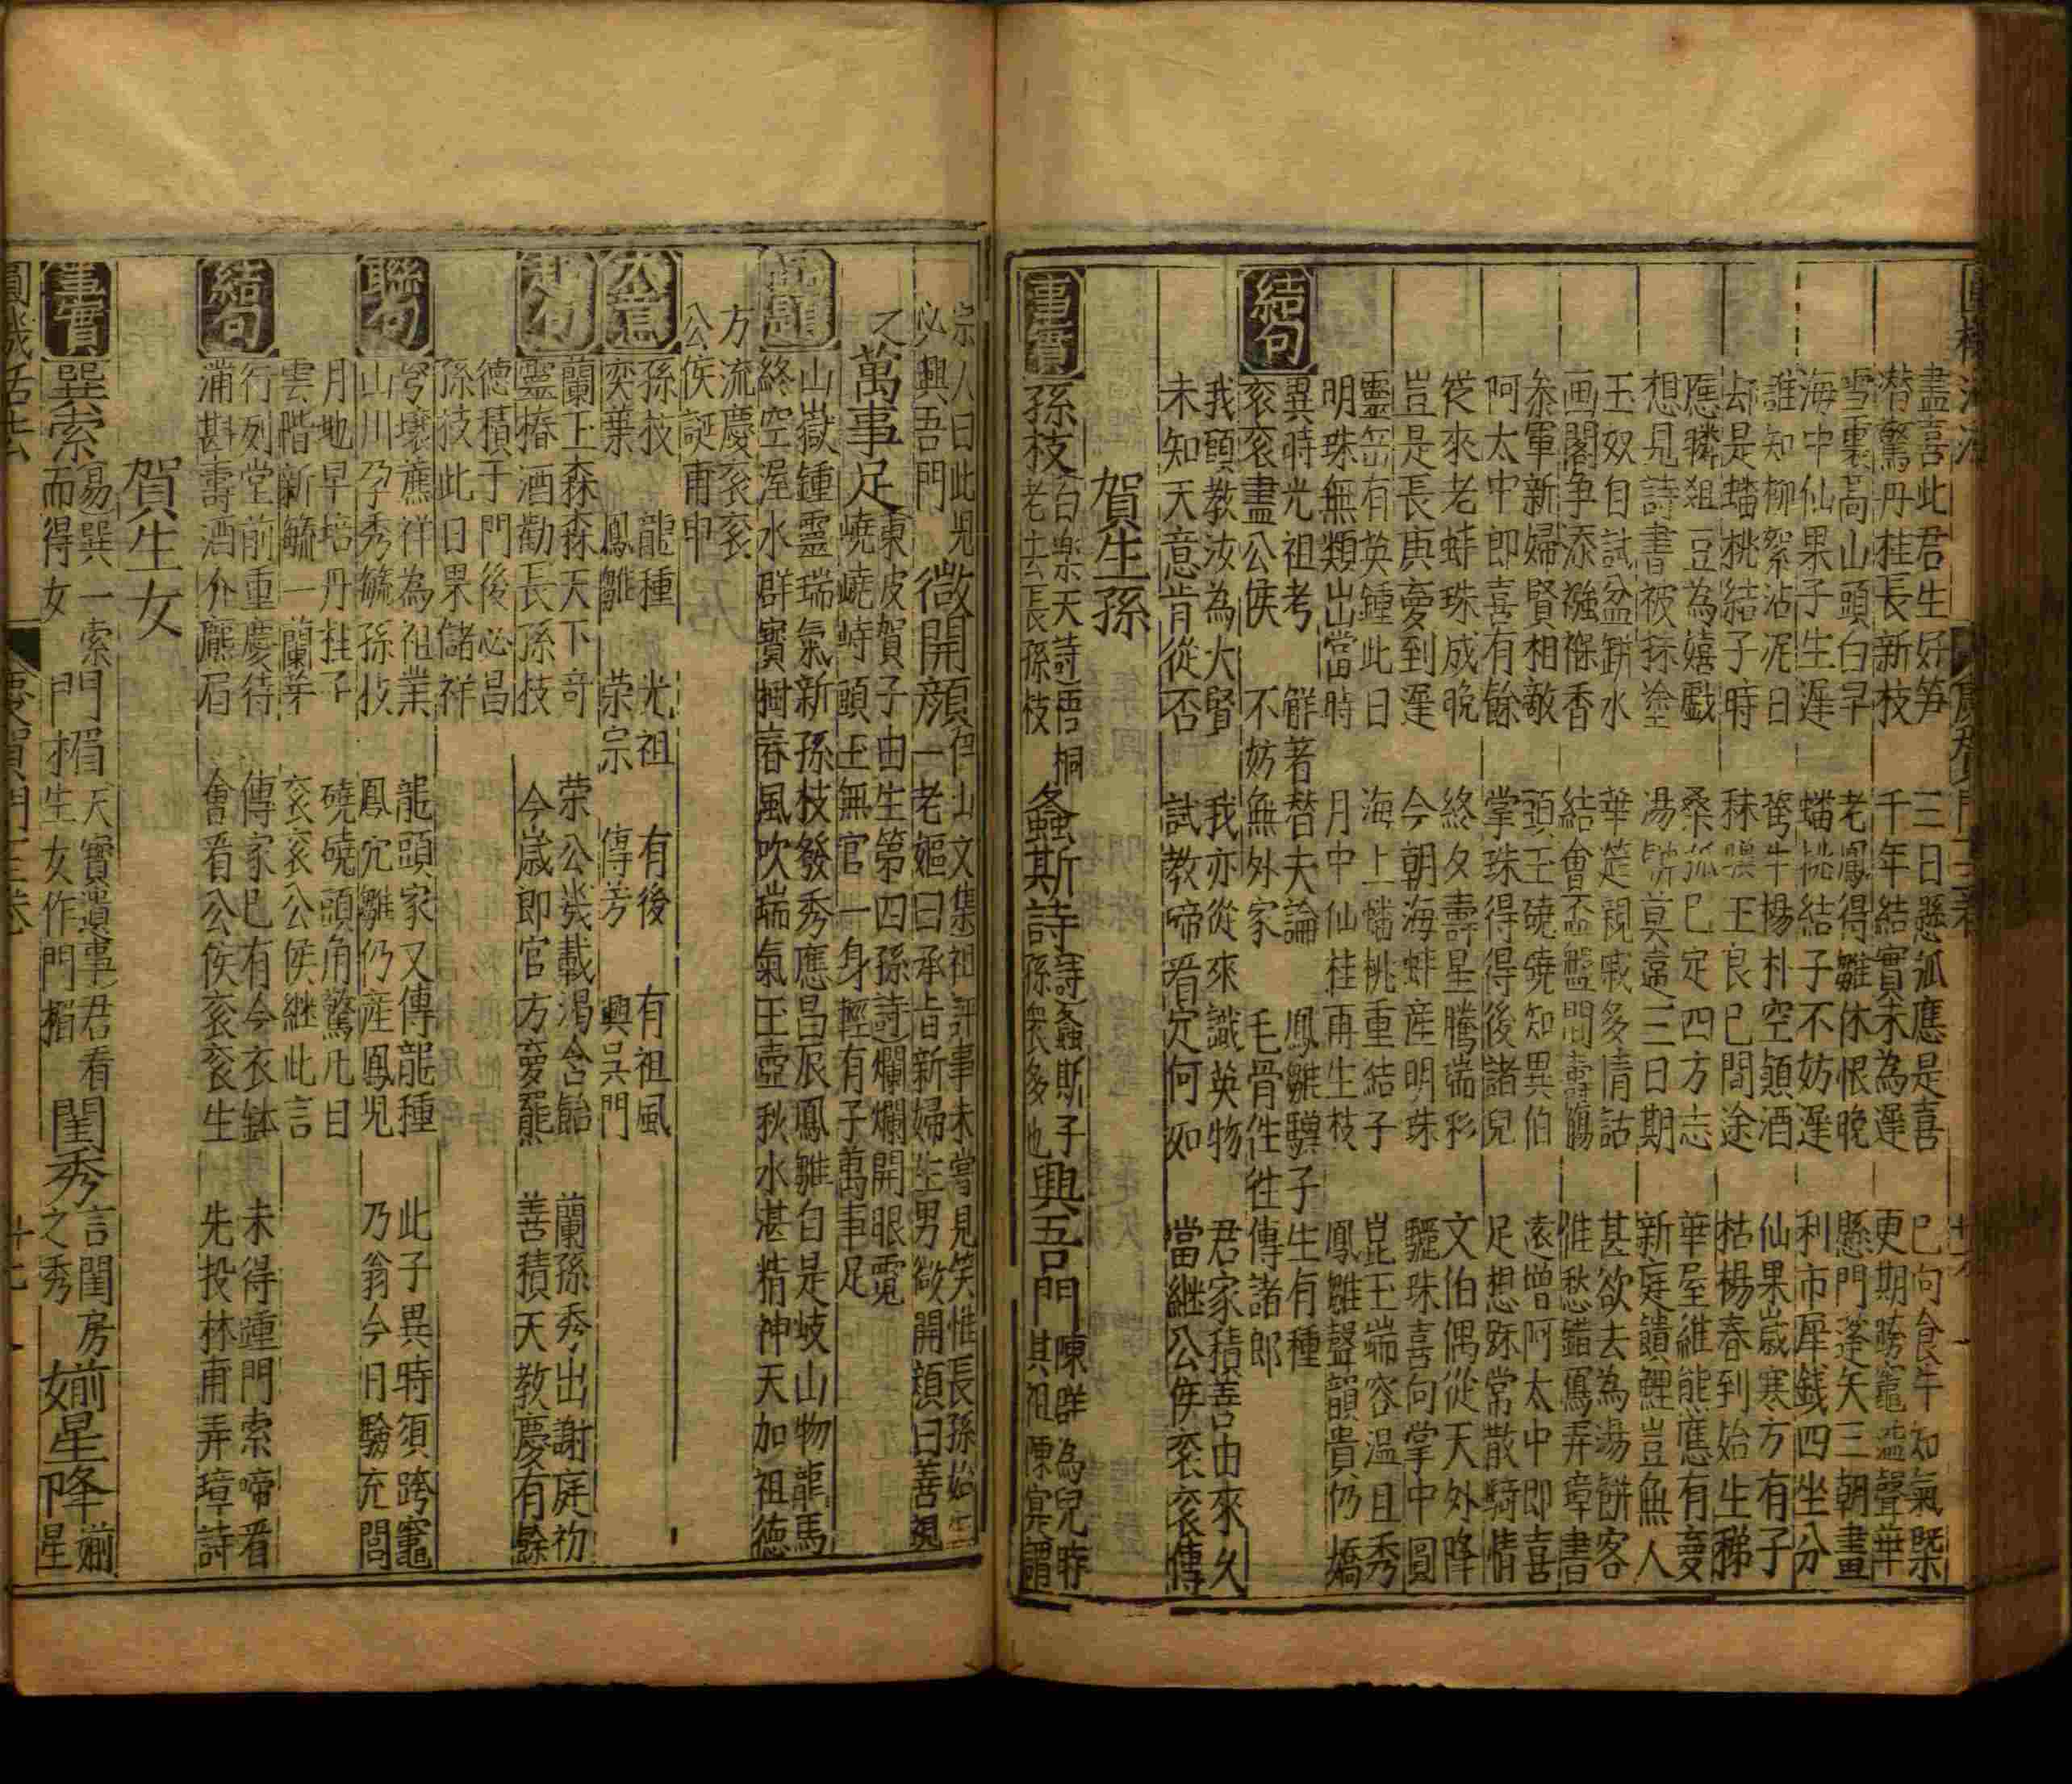 盡喜此君生好笋 三日懸弧應是喜 已向食牛知氣槩
潜驚丹桂長新枝 千年結實未為遲 更期跨竈溢聲華
雪裏高山頭白早 老鳳得雛休恨晚 懸門蓬矢三朝畫
海中仙果子生遲 蟠桃結子不妨遲 利市犀錢四坐分
誰知柳絮沾泥日 枯楊朴空顛酒 仙果歲寒方有子
却是蟠桃結子時 王良已問途 枯楊春到始生稊
應購俎豆為嬉戲 桑弧已定四方志 華屋維熊應有夢
想見詩書被抹塗 湯餅莫違三日期 新庭饋鯉豈無人
玉奴自試盆餅水 華筵親戚多情話 甚欲去為湯餅客
画閣争添襁褓香 結會盃盤間壽觴 惟愁錯寫弄璋書
叅軍新婦賢相敵 頭玉磽磽知異伯 遠增阿太中即喜
阿太中即喜有餘 掌珠得得後諸兒 足想跡常散騎情
從來老蚌珠成晚 終夕壽星騰瑞彩 文伯偶從天外降
豈是長庚夢到遲 今朝海蚌産明珠 驪珠喜向掌中圓
靈岳有英鍾此日 海上蟠桃重結子 崑玉端容温且秀
明珠無類出當時 月中仙桂再生枝 鳳雛聲韻貴仍嬌
結句 異時光祖考 觧著替夫論 鳳雛驥子生有種
衮衮盡公侯 不妨無外家 毛骨徃徃傳諸郎
我願教汝為大賢 我亦從來識英物 君家積善由來久
未知天意肯從否 試教啼看定何如 當継公侯衮衮傳
賀生孫
事實 孫枝 白樂天詩梧桐老去長孫枝 螽斯詩 詩螽斯子孫衆多也 興吾門 陳群為兒時其祖陳寔謂
宗人曰此兒必興吾門 啟開顔 伊山文集祖評事未嘗見笑惟長孫始生一老嫗曰承旨新婦生男欲開顔曰善視
之 萬事足 東坡賀子由生第四孫詩爛爛開眼電嶢嶢峙頭玉無官一身輕有子萬事足
山嶽鍾靈瑞氣新 孫枝發秀應昌辰 鳳雛自是岐山物 龍馬
終空渥水群 寳樹春風吹瑞氣 玉壺秋水湛精神 天加祖德
方流慶衮衮
公侯誕甫申
大意 孫枝 龍種 光祖 有後 有祖風
奕葉 鳳雛 荣宗 傳芳 興吴門
起句 蘭玉森森天下竒 荣公幾載渴含飴 蘭孫秀出謝庭初
靈椿酒勸長孫枝 今歲即官方夢羆 善積天教慶有餘
德積于門後必昌
孫枝此日果儲祥
聯句 兮壤薦祥為祖業 龍頭家又傳龍種 此子異時須跨竈
山川孕秀毓孫枝 鳳穴雛仍産鳳兒 乃翁今日驗充閭
月地早培丹桂子 磽磽頭角驚凡目
雲階新毓一蘭芽 衮衮公侯継此言
結句 行列堂前重慶待 傳家已有今衣鉢 未得踵門索啼看
蒲斟壽酒介龐眉 會看公侯衮衮生 先投林甫弄璋詩
賀生女
事實 巽索 易巽一索而得女 門楣 天寶遺事君看生女作門楣 閨秀 言閨房之秀 婺星降 婺星